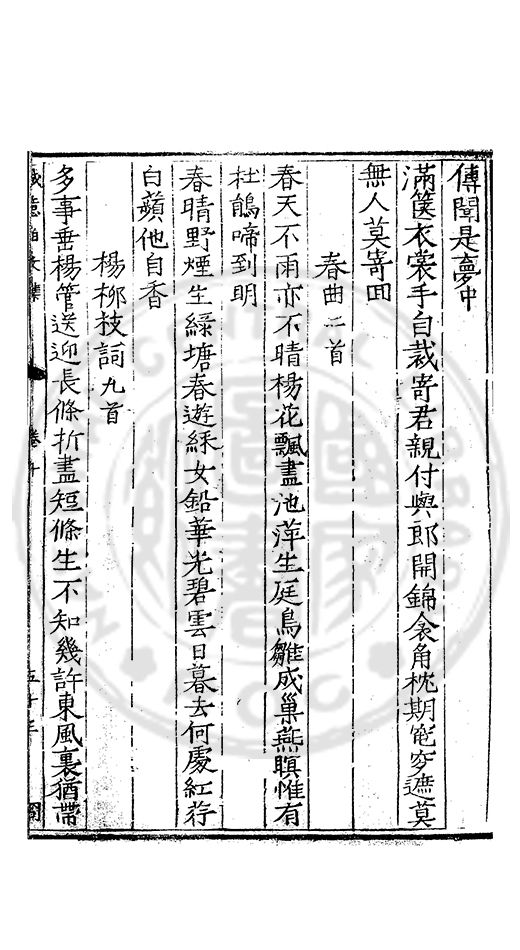 傳聞是夢中
滿篋衣裳手自裁寄君親付與郎開錦衾角枕期䆫穸遮莫
無人莫寄回
春曲二首
春天不雨亦不晴楊花飄盡池萍生庭鳥雛成巢燕瞑惟有
杜鵑啼到明
春晴野煙生綠塘春遊綵女鉛華光碧雲日暮去何處紅荇
白蘋他自香
楊柳枝詞九首
多事垂楊管送迎長條折盡短條生不知幾許東風裏猶帶
誠意伯文集 卷十